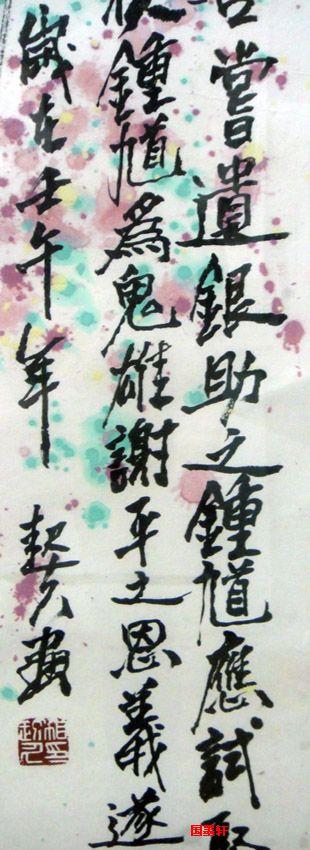 嘗遺銀助之鍾馗應試
鍾馗為鬼雄謝平之恩義遂
歲在壬午年 超
国画轩